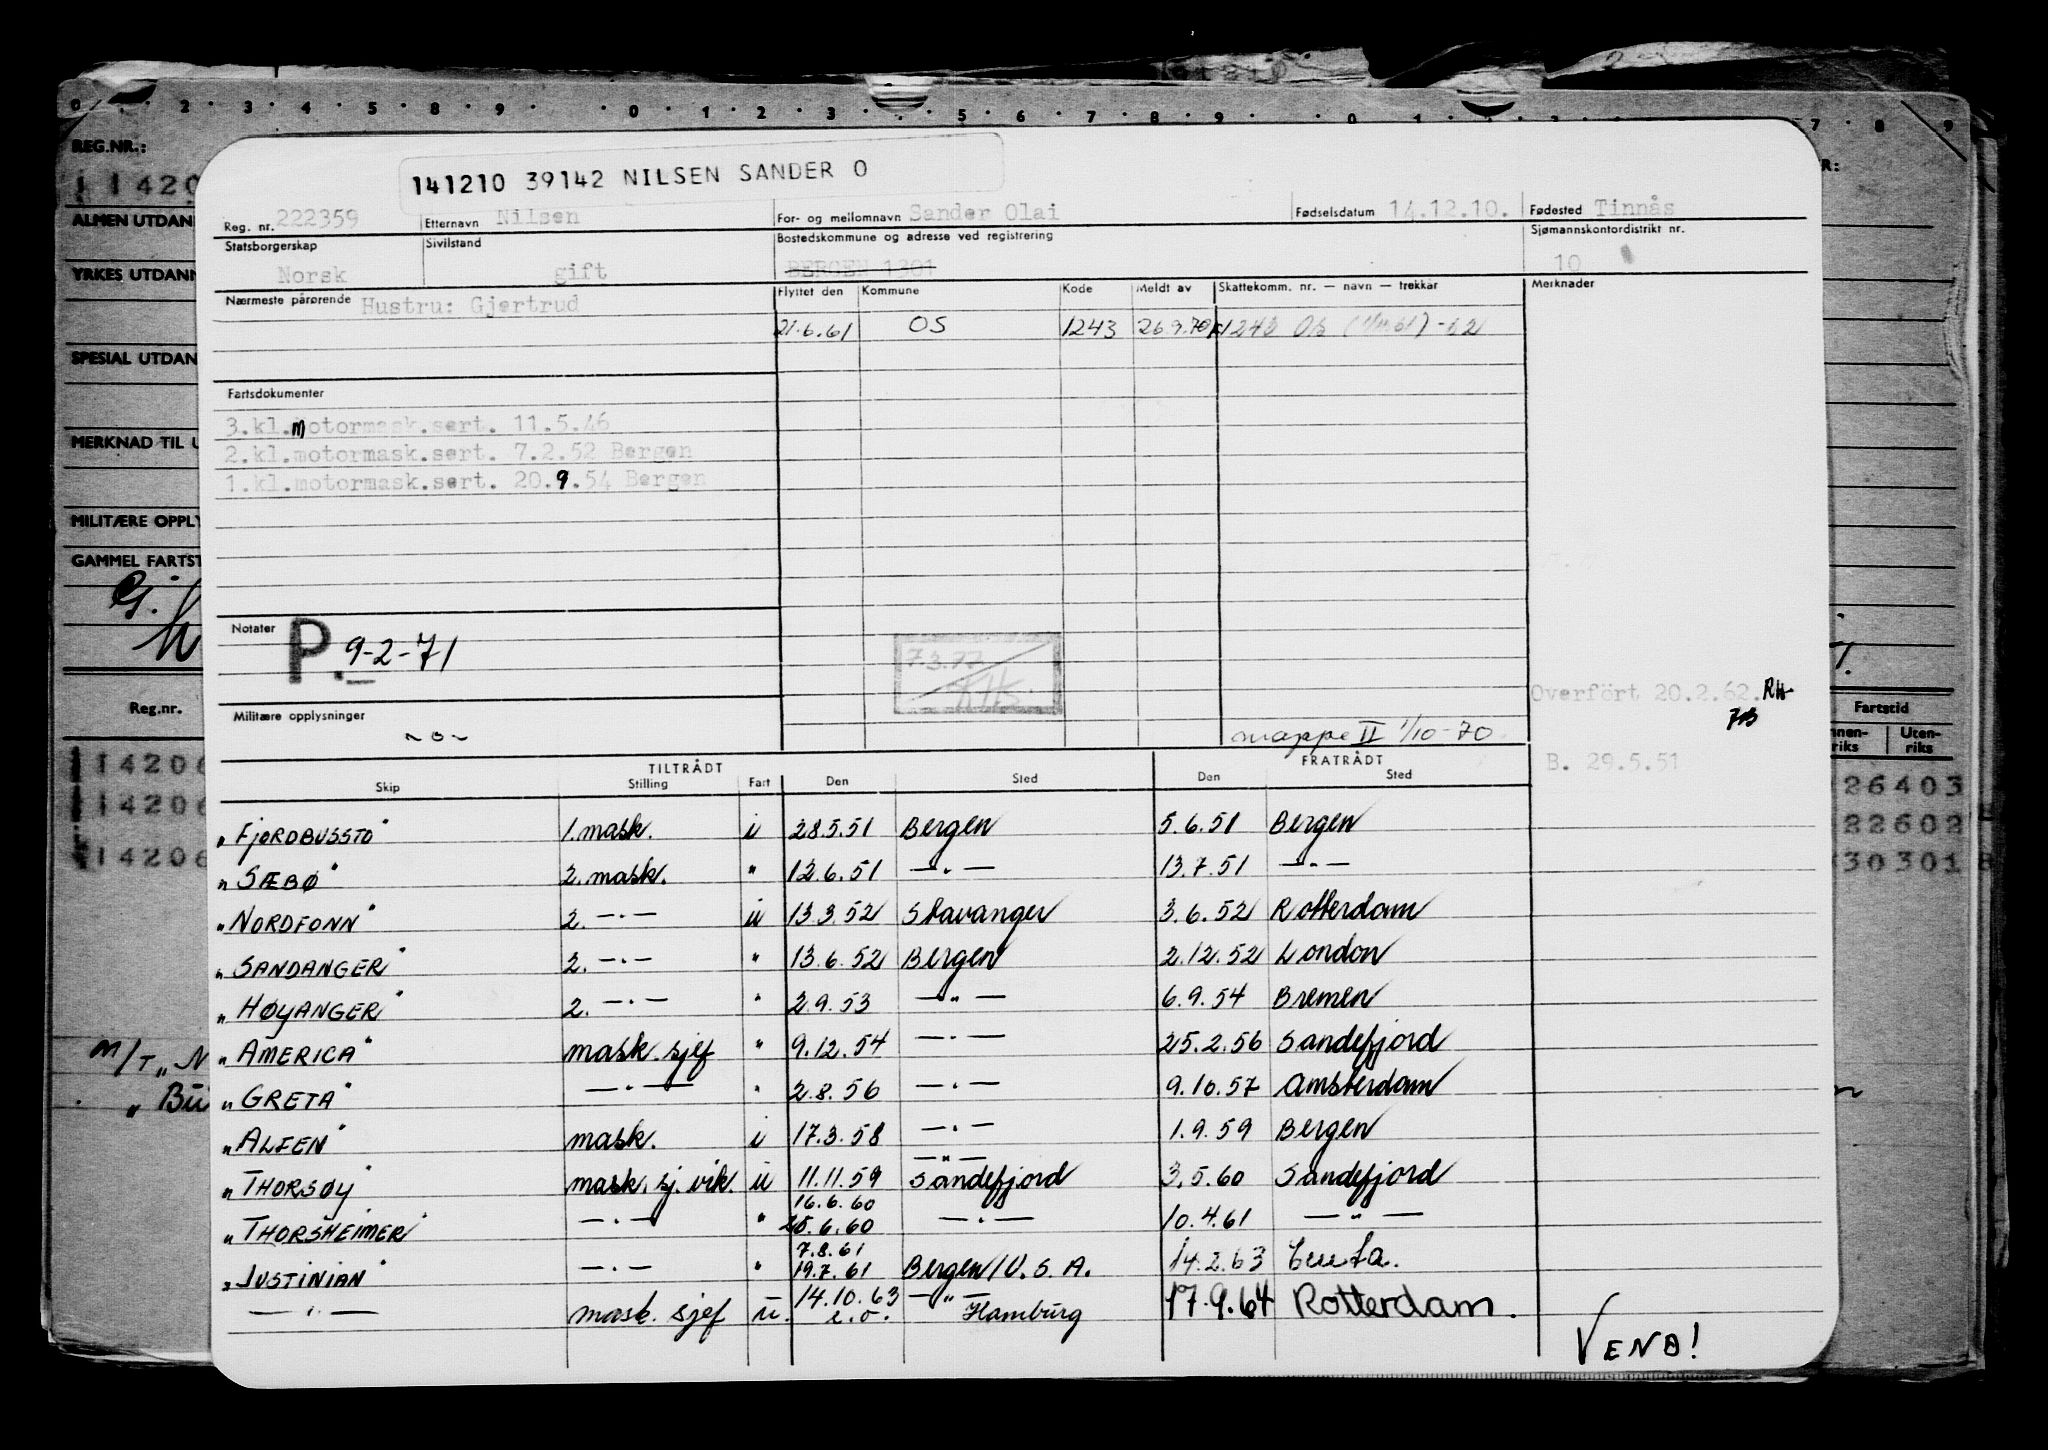 0 . . 2 . 3 . 4 . 5 . 8 . 9 . . 0 . 1 . 2 . 3 . . 5 . 6 . 7 . 8 . 9 . . 0 . 1 . 7 . 8 . 9
REG.NR.:
1 1420
ALMEN UTDAN
YRKES UTDANN
SPESIAL UTDAN
MERKNAD TIL U
MILITÆRE OPPLY
GAMMEL FARTST
G.
Reg.nr.
11420 6
11420 6
11420 6
M/T „N
„ Bü
141210 39142 NILSEN SANDER O
Reg. nr. 222359 Etternavn Nilsen For- og mellomnavn Sander Olai Fødselsdatum 14.12.10. Fødested Tinnås
Statsborgerskap Sivilstand Bostedskommune og adresse ved registrering Sjømannskontordistrikt nr.
Norsk gift BERGEN 1301 10
Nærmeste pårørende Hustru: Gjertrud Flyttet den Kommune Kode Meldt av Skattekomm. nr. — navn — trekkår Merknader
21.6.61 OS 1243 26.9.70 1243 Os (1/11.61) -62
Fartsdokumenter
3.kl.motormask.sert. 11.5.46
2.kl.motormask.sert. 7.2.52 Bergen
1.kl.motormask.sert. 20.9.54 Bergen
Notater P. 9-2-71
7.3.72
Overfört 20.2.62. RH
Militære opplysninger
~ o ~
mappe II 1/10-70
B. 29.5.51
TILTRÅDT FRATRÅDT
Skip Stilling Fart Den Sted Den Sted
„FJORDBUSSTO" 1. mask. i 28.5.51 Bergen 5.6.51 Bergen
„SÆBØ" 2. mask. " 12.6.51 —.— 13.7.51 —.—
„NORDFONN" 2. —.— ü 13.3.52 Stavanger 3.6.52 Rotterdam
„SANDANGER" 2. —.— " 13.6.52 Bergen 2.12.52 London
„HØYANGER" 2. —.— " 2.9.53 —"— 6.9.54 Bremen
„AMERICA" mask. sjef " 9.12.54 —.— 25.2.56 Sandefjord
„GRETA" —.— " 2.8.56 —.— 9.10.57 Amsterdam
„ALFEN" mask. i 17.3.58 —.— 1.9.59 Bergen
„THORSØY" mask. sj. vik. ü 11.11.59 —"— Sandefjord 3.5.60 Sandefjord
16.6.60
„THORSHEIMER" —.— " 25.6.60 —.— 10.4.61 —"—
7.8.61
„JUSTINIAN" —.— " 19.7.61 Bergen/U.S.A. 14.2.63 Ceuta.
14.10.63 —"—
—.— mask. sjef ü. e.o. Hamburg 17.9.64 Rotterdam.
VEND!
R:
Fartstid
nnen-riks Uten-riks
26403
22602
30301